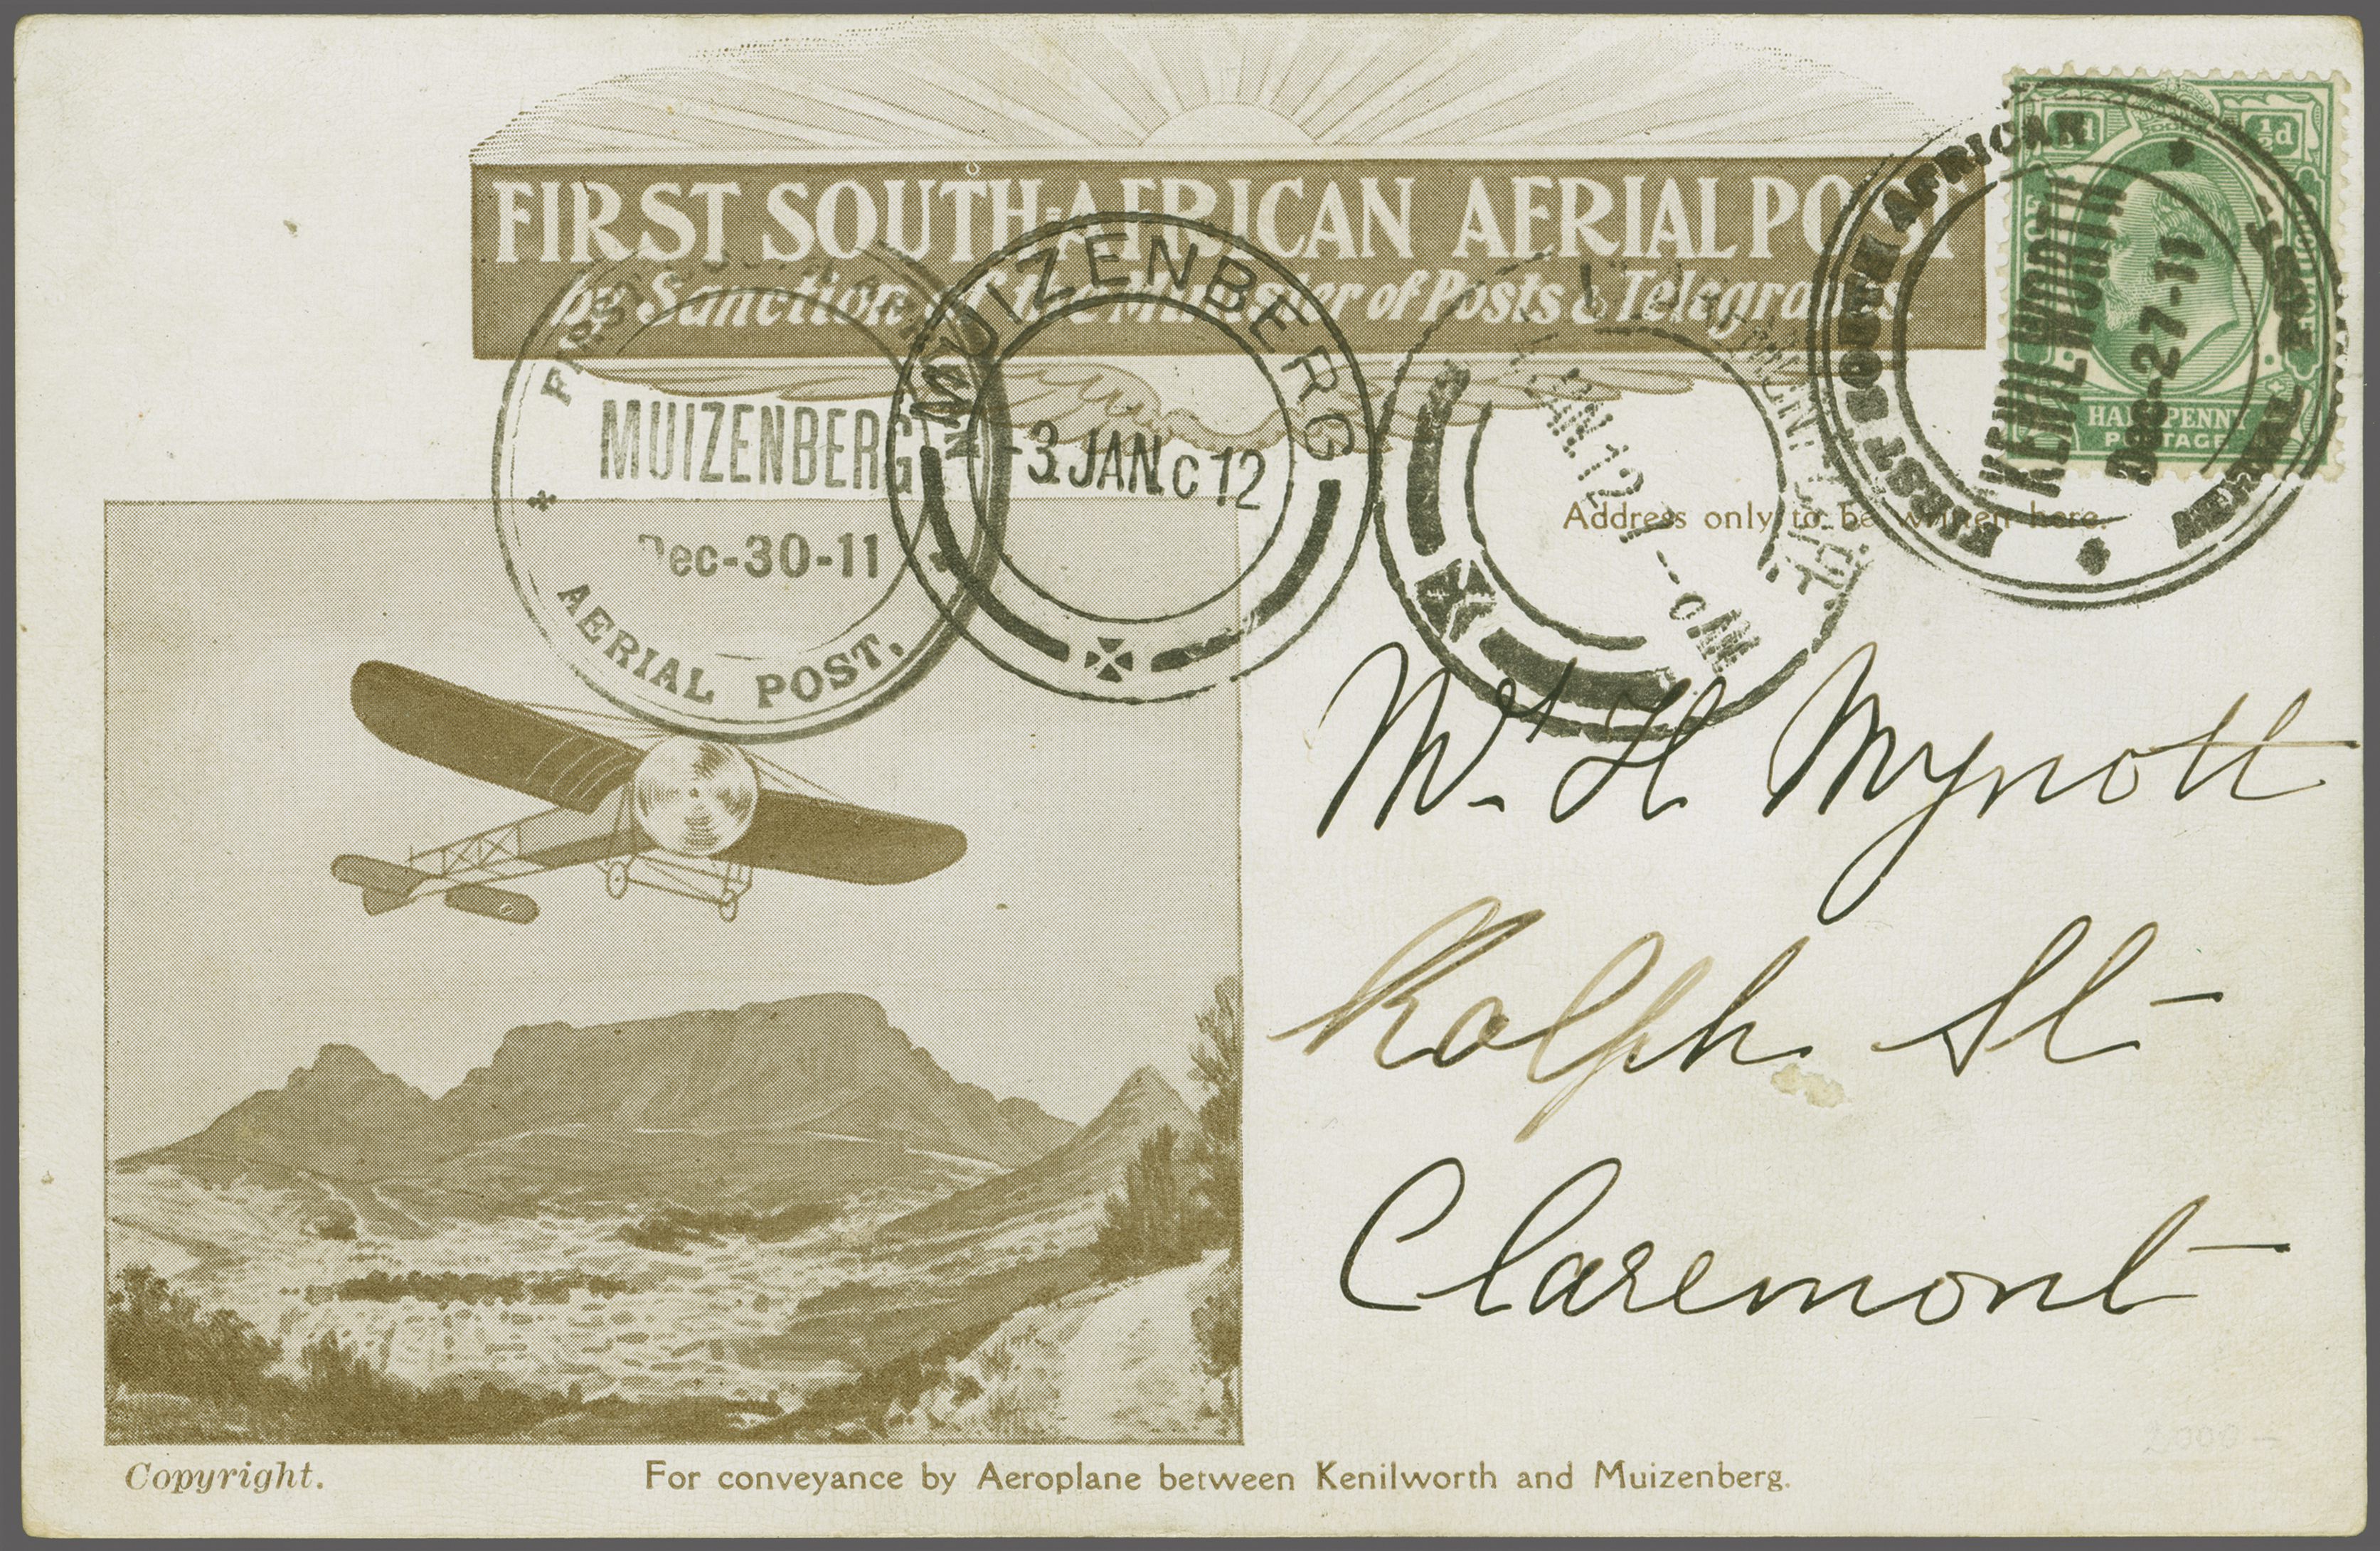 FIRST SOUTH-AFRICAN AERIAL POST
by Sanction of the Minister of Posts & Telegraphs.
FIRST SOUTH AFRICAN
MUIZENBERG
Dec-30-11
AERIAL POST.
MUIZENBERG
-3 JAN C 12
JAN 12
FIRST SOUTH AFRICAN
KENILWORTH
Dec-27-11
AERIAL POST
½d
HALF PENNY
POSTAGE
Address only to be written here.
Mr. H Mynott
Ralph St
Claremont
Copyright.
For conveyance by Aeroplane between Kenilworth and Muizenberg.